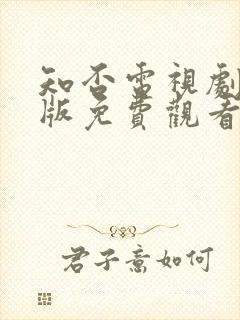 知否電視劇
版免費觀看
君子意如何